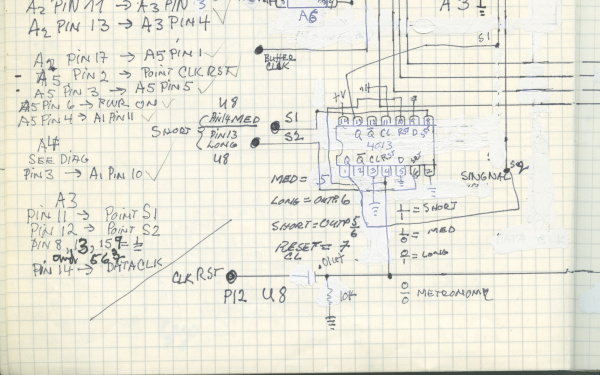 A2 PIN 11 → A3 PIN 3
A2 PIN 13 → A3 PIN 4
A2 PIN 17 → A5 PIN 1
A5 PIN 2 → POINT CLK RST
A5 PIN 3 → A5 PIN 5
A5 PIN 6 → PWR ON
A5 PIN 4 → A1 PIN 11
A4
SEE DIAG
PIN 3 → A1 PIN 10
A3
PIN 11 → POINT S1
PIN 12 → POINT S2
PIN 8, 13, 15
PIN 14 → DATA CLK
A6
A3
S1
BUFFER
U8
SHORT
PIN 14 MED
PIN 13
LONG
U8
S1
S2
+V
14 13 12 11 10 9 8
Q Q̅ CL RST D S
4013
Q Q̅ CL RST D
1 2 3 4 5 6 7
MED = 5
LONG = OUTP 6
SHORT = OUTP 5/6
RESET = 7
CL
SINGNAL
S2
1/1 = SHORT
1/0 = MED
0/1 = LONG
0/0 METRONOME
CLK RST
P12 U8
.01uf
10K